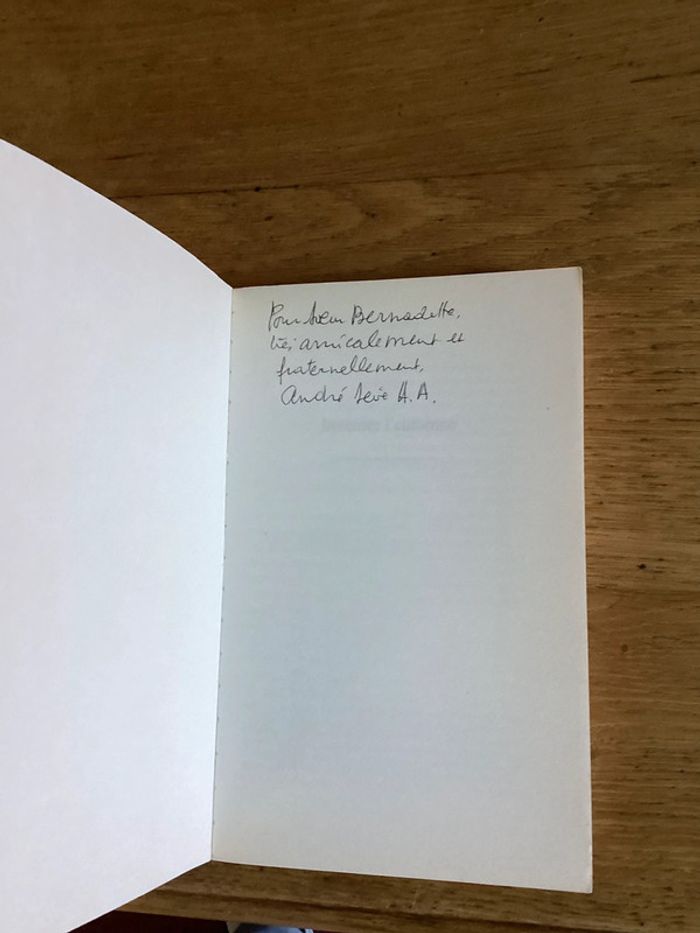 Pour Sœur Bernadette,
très amicalement et
fraternellement,
André Sève A.A.